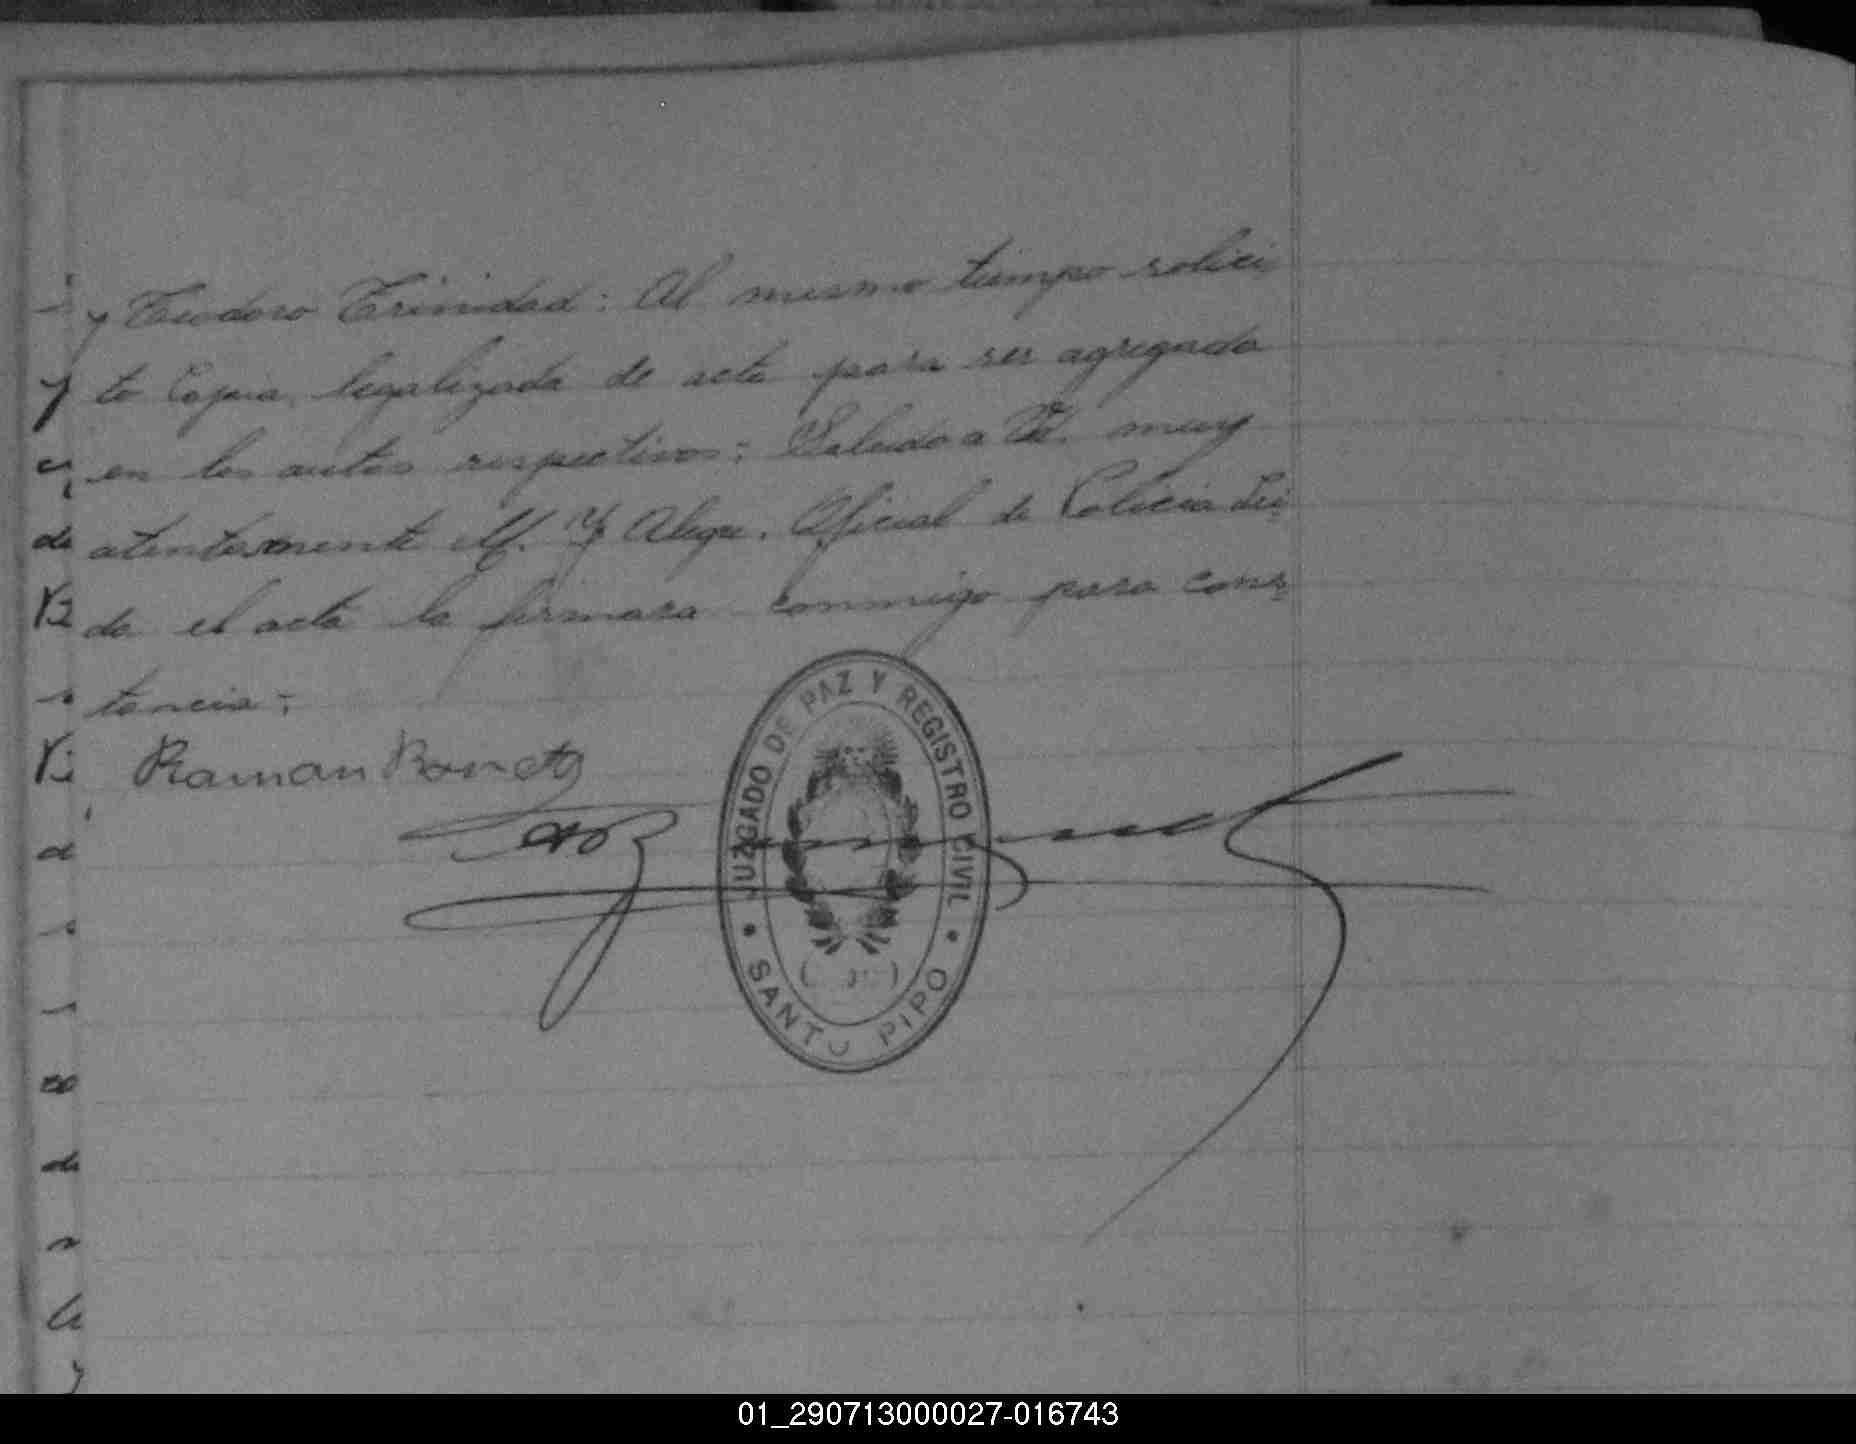 y Teodoro Trinidad: Al mismo tiempo solici
to Copia legalizada de acta para ser agregada
en los autos respectivos: Saludo a Vd. muy
atentamente M. Alegre. Oficial de Policia Lei-
da el acta la firmara conmigo para cons-
tancia:
Raman
JUZGADO DE PAZ Y REGISTRO CIVIL
SANTO PIPO
01_290713000027-016743